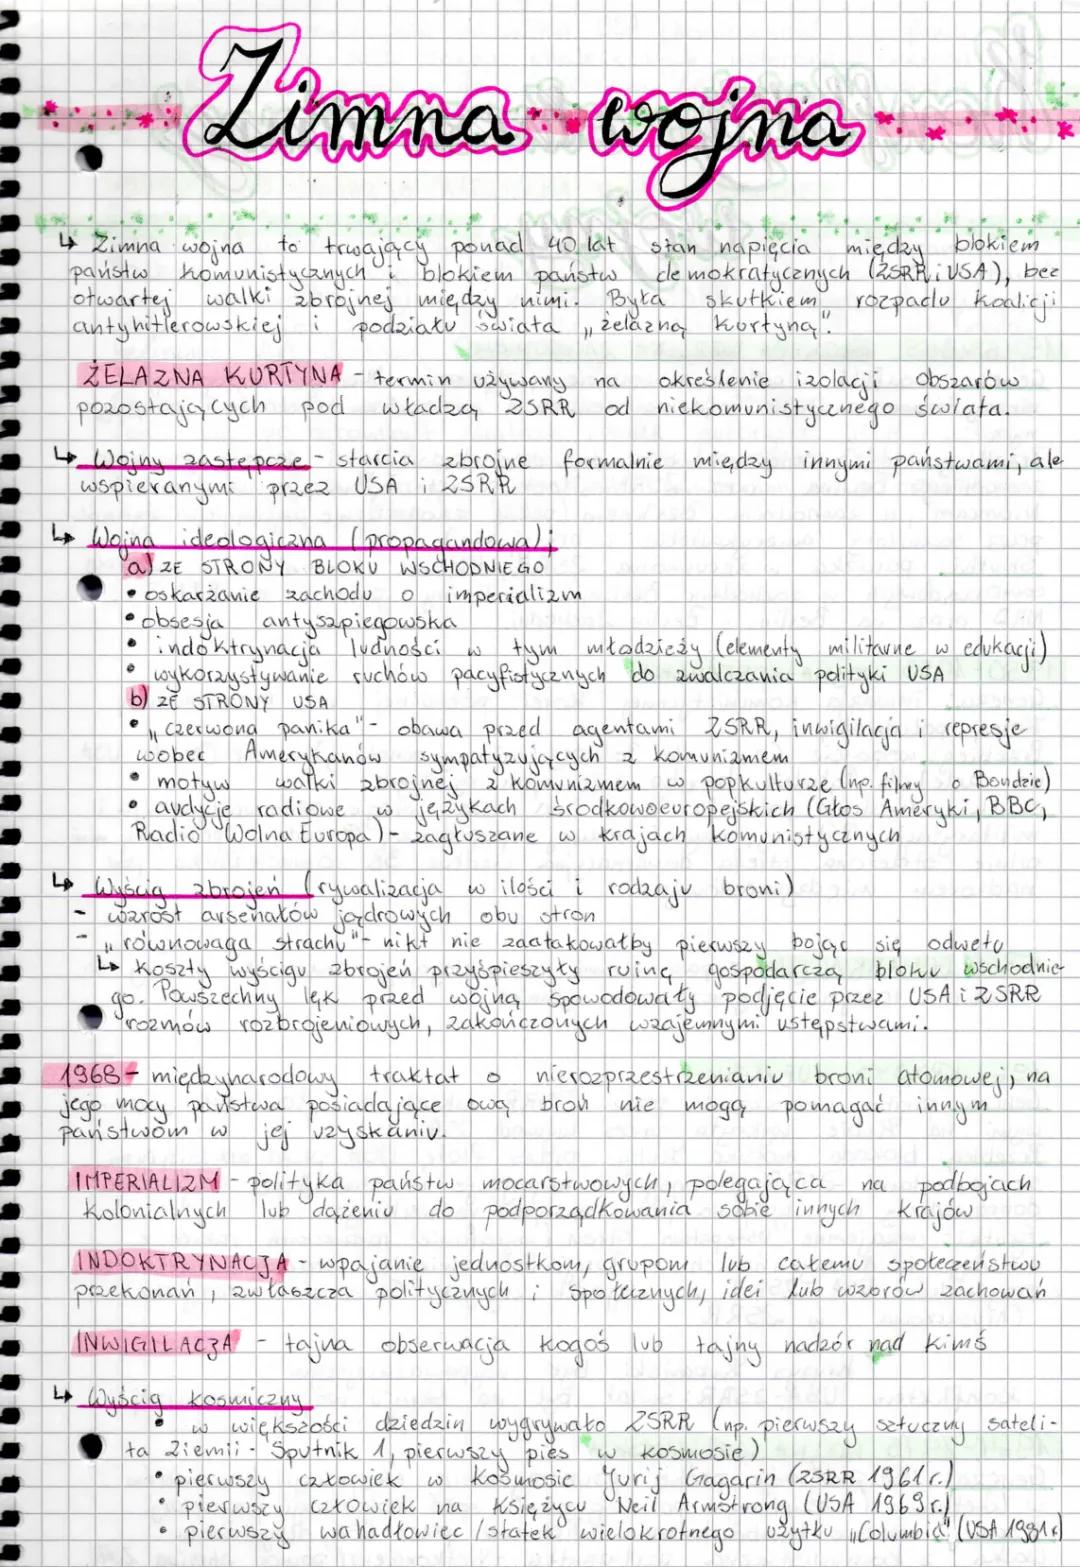 Zimna wojna
↳ Zimna wojna to trwający ponad 40 lat stan napięcia między blokiem
państw komunistycznych i blokiem państw demokratycznych (ZSRR i USA), bez
otwartej walki zbrojnej między nimi. Była skutkiem rozpadu koalicji
antyhitlerowskiej i podziału świata „żelazną kurtyną".
ŻELAZNA KURTYNA - termin używany na określenie izolacji obszarów
pozostających pod władzą ZSRR od niekomunistycznego świata.
↳ Wojny zastępcze - starcia zbrojne formalnie między innymi państwami, ale
wspieranymi przez USA i ZSRR
↳ Wojna ideologiczna (propagandowa):
a) ZE STRONY BLOKU WSCHODNIEGO
• oskarżanie zachodu o imperializm
• obsesja antyszpiegowska
• indoktrynacja ludności w tym młodzieży (elementy militarne w edukacji)
• wykorzystywanie ruchów pacyfistycznych do zwalczania polityki USA
b) ZE STRONY USA
• „czerwona panika" - obawa przed agentami ZSRR, inwigilacja i represje
wobec Amerykanów sympatyzujących z komunizmem
• motyw walki zbrojnej z komunizmem w popkulturze (np. filmy o Bondzie)
• audycje radiowe w językach środkowoeuropejskich (Głos Ameryki, BBC,
Radio Wolna Europa) - zagłuszane w krajach komunistycznych
↳ Wyścig zbrojeń (rywalizacja w ilości i rodzaju broni)
- wzrost arsenałów jądrowych obu stron
- „równowaga strachu" - nikt nie zaatakowałby pierwszy bojąc się odwetu
↳ koszty wyścigu zbrojeń przyśpieszyły ruinę gospodarczą bloku wschodnie-
go. Powszechny lęk przed wojną spowodowały podjęcie przez USA i ZSRR
rozmów rozbrojeniowych, zakończonych wzajemnymi ustępstwami.
1968 - międzynarodowy traktat o nierozprzestrzenianiu broni atomowej, na
jego mocy państwa posiadające ową broń nie mogą pomagać innym
państwom w jej uzyskaniu.
IMPERIALIZM - polityka państw mocarstwowych, polegająca na podbojach
kolonialnych lub dążeniu do podporządkowania sobie innych krajów
INDOKTRYNACJA - wpajanie jednostkom, grupom lub całemu społeczeństwu
przekonań, zwłaszcza politycznych i społecznych, idei lub wzorów zachowań
INWIGILACJA - tajna obserwacja kogoś lub tajny nadzór nad kimś
↳ Wyścig kosmiczny
• w większości dziedzin wygrywało ZSRR (np. pierwszy sztuczny sateli-
ta Ziemii - Sputnik 1, pierwszy pies w kosmosie)
• pierwszy człowiek w kosmosie Jurij Gagarin (ZSRR 1961 r.)
• pierwszy człowiek na Księżycu Neil Armstrong (USA 1969 r.)
• pierwszy wahadłowiec / statek wielokrotnego użytku „Columbia" (USA 1981 r.)